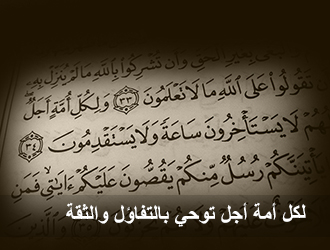 بِغَيْرِ الْحَقِّ وَأَن تُشْرِكُوا بِاللَّهِ مَا لَمْ يُنَزِّلْ بِهِ
تَقُولُوا عَلَى اللَّهِ مَا لَا تَعْلَمُونَ ٣٣ وَلِكُلِّ أُمَّةٍ أَجَلٌ
لَا يَسْتَأْخِرُونَ سَاعَةً وَلَا يَسْتَقْدِمُونَ ٣٤
يَأْتِيَنَّكُمْ رُسُلٌ مِّنكُمْ يَقُصُّونَ عَلَيْكُمْ آيَاتِي فَمَنِ
لكل أمة أجل توحي بالتفاؤل والثقة